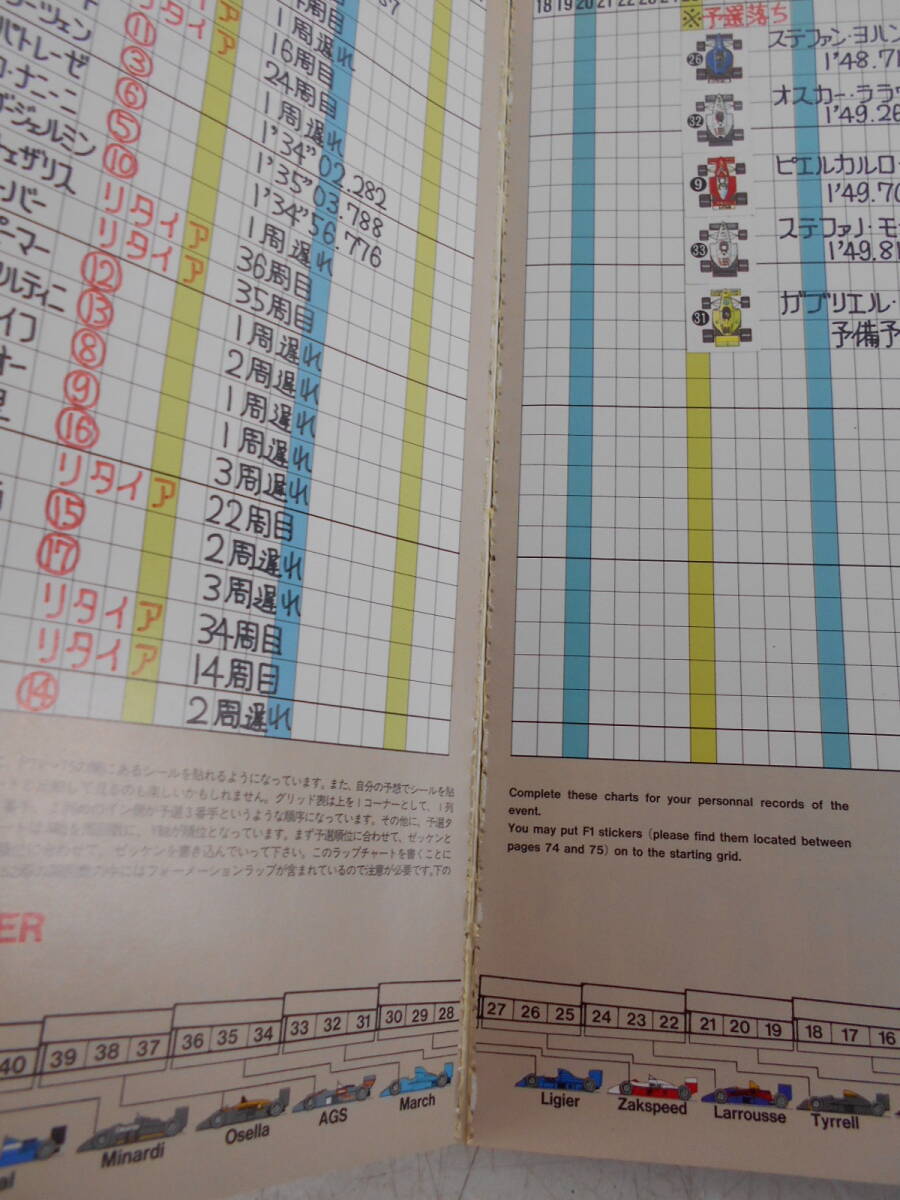 リタイア
ーツェン ⑪ 1周遅れ
パトレーゼ ③ 16周目
・ナニーニ ⑥ 24周目
⑤ 1周遅れ
ジェルミン ⑩ 1'34"02.282
ェザリス リタイア 1'35"03.788
ーバー リタイア 1'34"56.776
ーマー ⑫ 1周遅れ
ルティニ ⑬ 36周目
イフ ⑧ 35周目
オー ⑨ 1周遅れ
⑯ 2周遅れ
リタイア 1周遅れ
⑮ 1周遅れ
⑰ 3周遅れ
リタイア 22周目
リタイア 2周遅れ
⑭ 3周遅れ
34周目
14周目
2周遅れ
あるシールを貼れるようになっています。また、自分の予想でシールを貼
して見るのも楽しいかもしれません。グリッド表は上を1コーナーとして、1列
イン側が予選3番手というような順序になっています。その他に、予選タ
が順位となっています。まず予選順位に合わせて、ゼッケンと
ゼッケンを書き込んでいって下さい。このラップチャートを書くことに
中にはフォーメーションラップが含まれているので注意が必要です。下の
ER
40 39 38 37 36 35 34 33 32 31 30 29 28
Minardi Osella AGS March
18 19 20 21 22
※予選落ち
26 ステファン・ヨハン
1'48.71
32 オスカー・ララ
1'49.26
9 ピエルカルロ・
1'49.70
33 ステファノ・モ
1'49.81
31 ガブリエル・
予備予
Complete these charts for your personnal records of the
event.
You may put F1 stickers (please find them located between
pages 74 and 75) on to the starting grid.
27 26 25 24 23 22 21 20 19 18 17 16
Ligier Zakspeed Larrousse Tyrrell